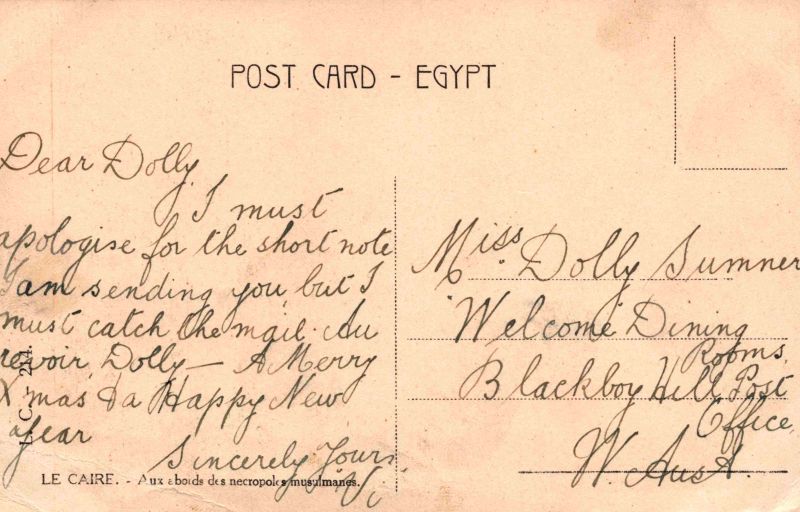 POST CARD - EGYPT
Dear Dolly,
I must
apologise for the short note
I am sending you, but I
must catch the mail. Au
revoir, Dolly — A Merry
Xmas & a Happy New
Year
Sincerely Yours
Miss Dolly Sumner
"Welcome" Dining
Rooms,
Blackboy Hill Post
Office,
W. Aust.
LE CAIRE. - Aux abords des necropoles musulmanes.